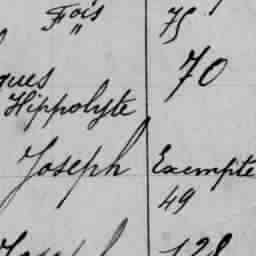 Fois 75
"
70
ques
Hippolyte
Joseph Exempte
49
128